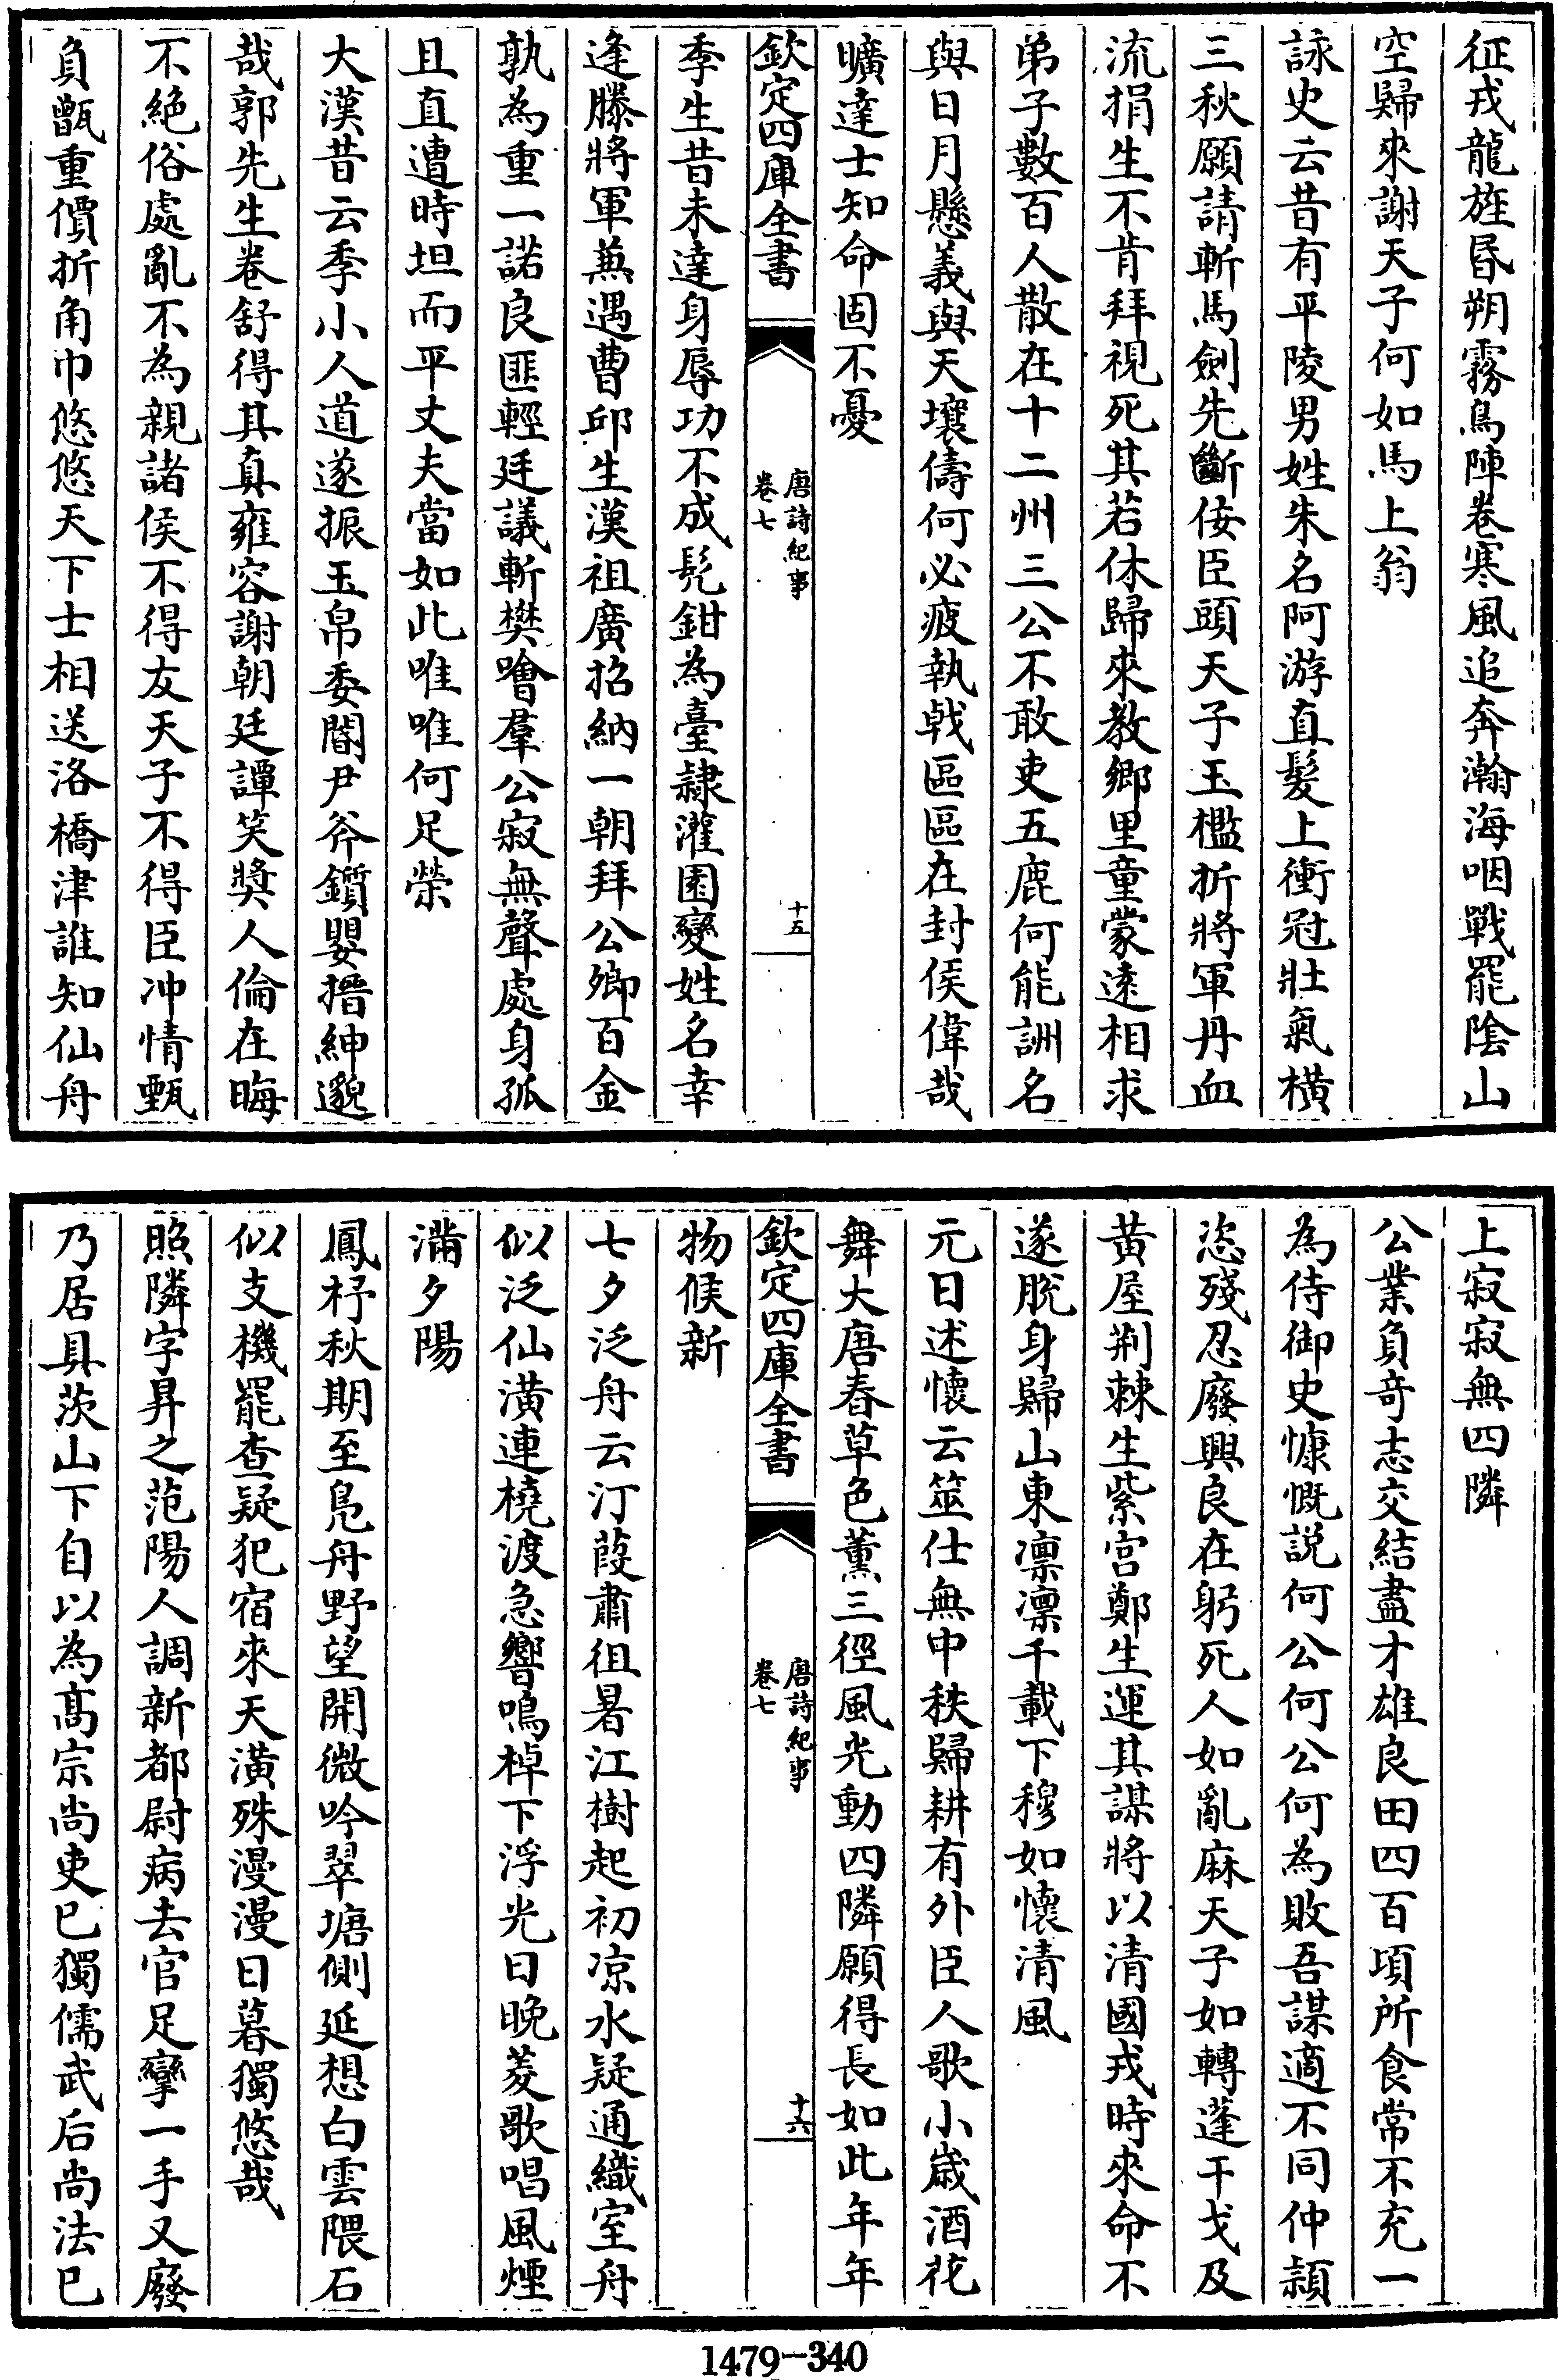 征戎龍旌昏朔霧鳥陣卷寒風追奔瀚海咽戰罷陰山
空歸來謝天子何如馬上翁
詠史云昔有平陵男姓朱名阿游直髪上衝冠壯氣橫
三秋願請斬馬劍先斷佞臣頭天子玉檻折將軍丹血
流捐生不肯拜視死其若休歸來教鄉里童蒙逺相求
弟子數百人散在十二州三公不敢吏五鹿何能詶名
與日月懸義與天壤儔何必疲執戟區區在封侯偉哉
曠達士知命固不憂
欽定四庫全書
唐詩紀事
卷七
十五
季生昔未達身辱功不成髠鉗為臺隷灌園變姓名幸
逢滕將軍兼遇曹邱生漢祖廣招納一朝拜公卿百金
孰為重一諾良匪輕廷議斬樊噲羣公寂無聲處身孤
且直遭時坦而平丈夫當如此唯唯何足榮
大漢昔云季小人道遂振玉帛委閹尹斧鑕嬰搢紳邈
哉郭先生卷舒得其真雍容謝朝廷譚笑獎人倫在晦
不絶俗處亂不為親諸侯不得友天子不得臣冲情甄
負甑重價折角巾悠悠天下士相送洛橋津誰知仙舟
上寂寂無四隣
公業負竒志交結盡才雄良田四百頃所食常不充一
為侍御史慷慨説何公何公何為敗吾謀適不同仲潁
恣殘忍廢興良在躬死人如亂麻天子如轉蓬干戈及
黃屋荆棘生紫宫鄭生運其謀將以清國戎時來命不
遂脱身歸山東凛凛千載下穆如懷清風
元日述懷云筮仕無中秩歸耕有外臣人歌小嵗酒花
舞大唐春草色薫三徑風光動四隣願得長如此年年
欽定四庫全書
唐詩紀事
卷七
十六
物候新
七夕泛舟云汀葭肅徂暑江樹起初凉水疑通織室舟
似泛仙潢連橈渡急響鳴棹下浮光日晚菱歌唱風煙
滿夕陽
鳳杼秋期至鳬舟野望開微吟翠塘側延想白雲隈石
似支機罷查疑犯宿來天潢殊漫漫日暮獨悠哉
照隣字昇之范陽人調新都尉病去官足攣一手又廢
乃居具茨山下自以為髙宗尚吏已獨儒武后尚法已
1479—340